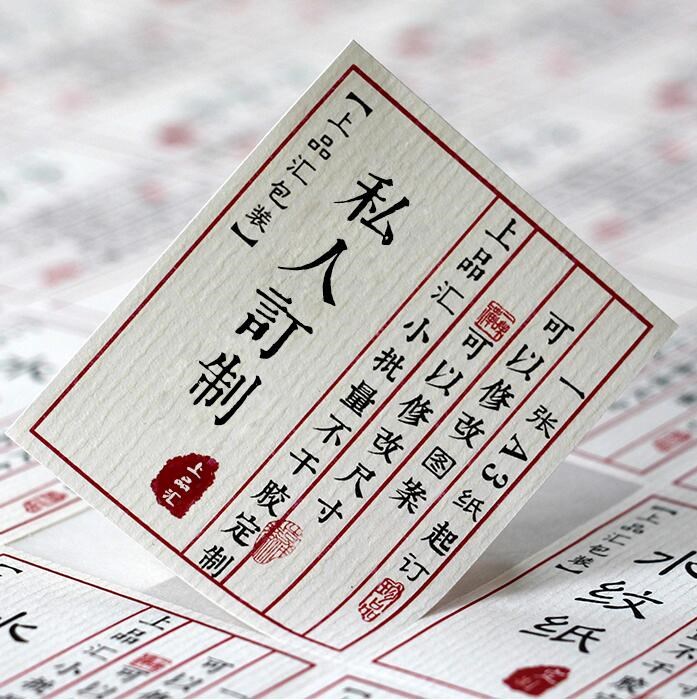 【上品汇包装】
私人訂制
上品汇
上品汇小批量不干胶定制
可以修改尺寸
可以修改图案
一张A3纸起订
【上品汇包装】
水纹纸
水
上品汇小批
可以
可以
水